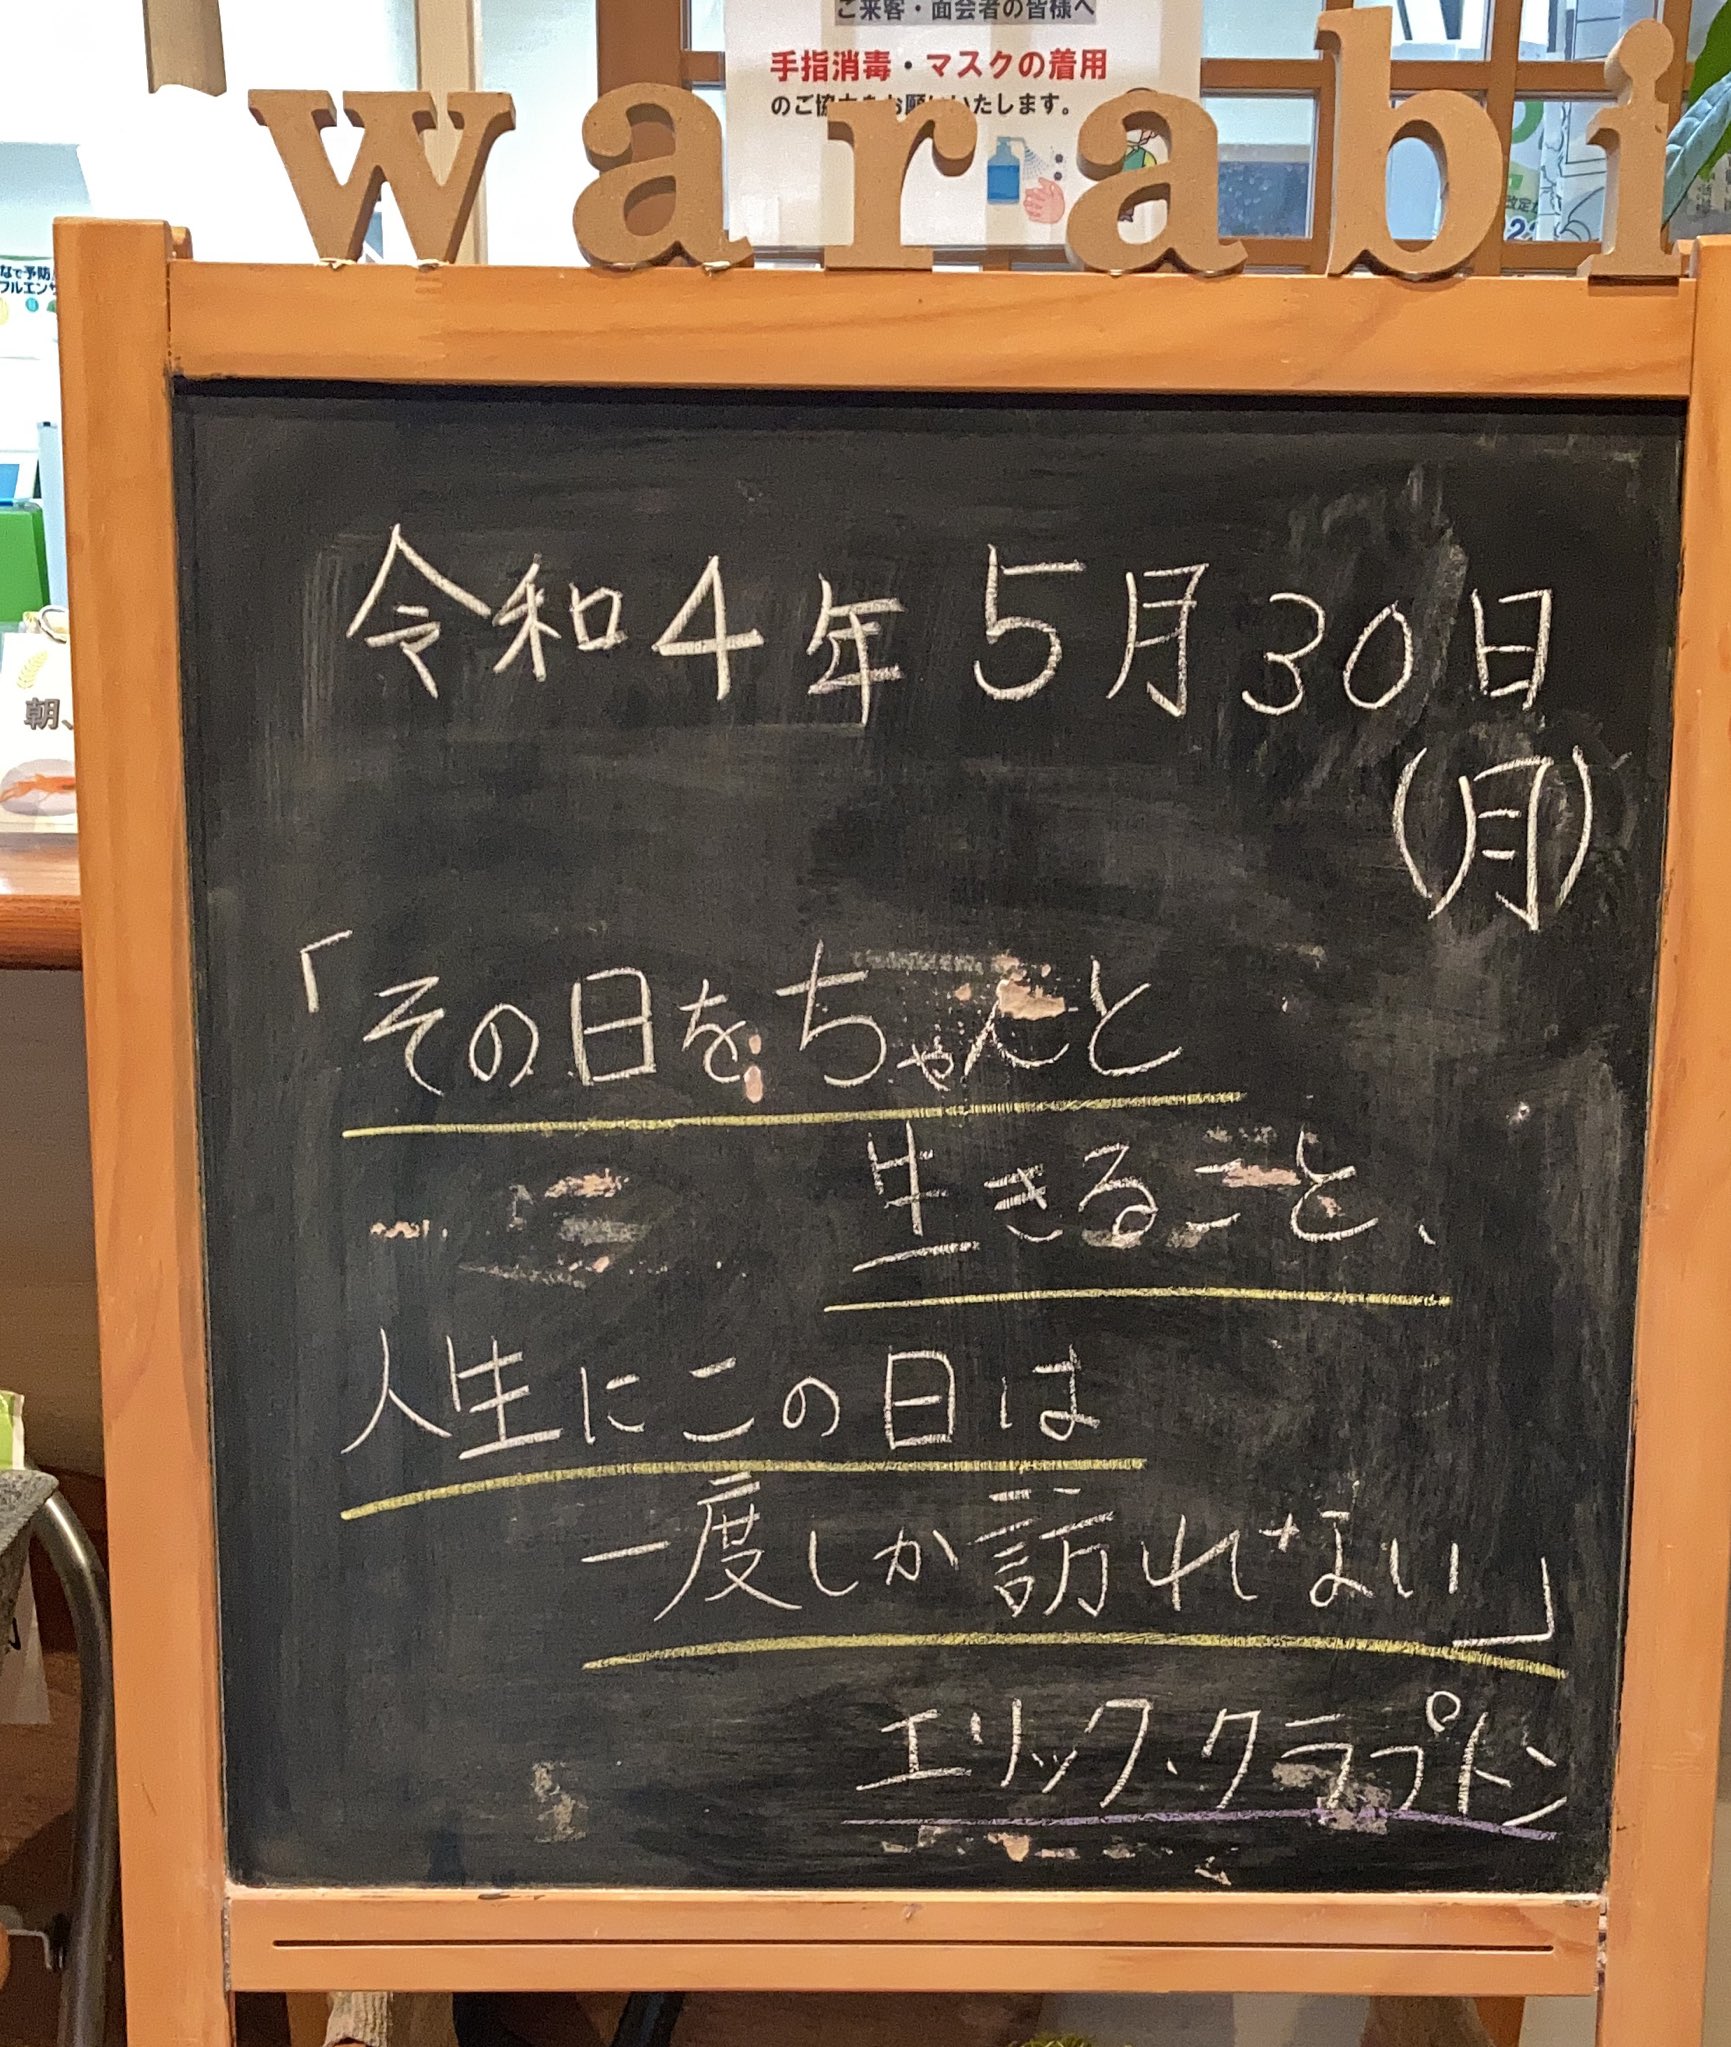 ご来客・面会者の皆様へ
手指消毒・マスクの着用
のご協力をお願いいたします。
warabi
令和4年5月30日
(月)
「その日をちゃんと
生きること、
人生にこの日は
一度しか訪れない」
エリック・クラプトン
朝、